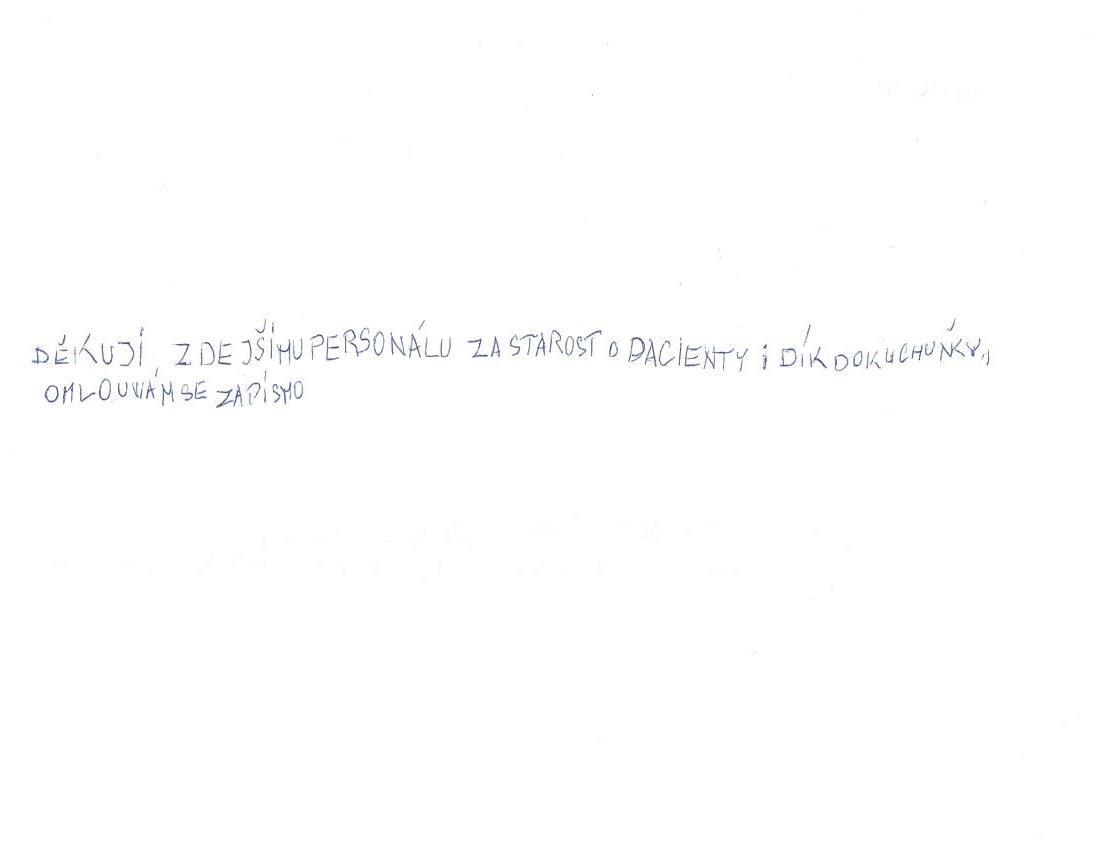 DĚKUJÍ, ZDEJŠÍMU PERSONÁLU ZA STAROST O PACIENTY i DÍK DO KUCHUŇKY.,
OMLOUVÁM SE ZA PÍSMO